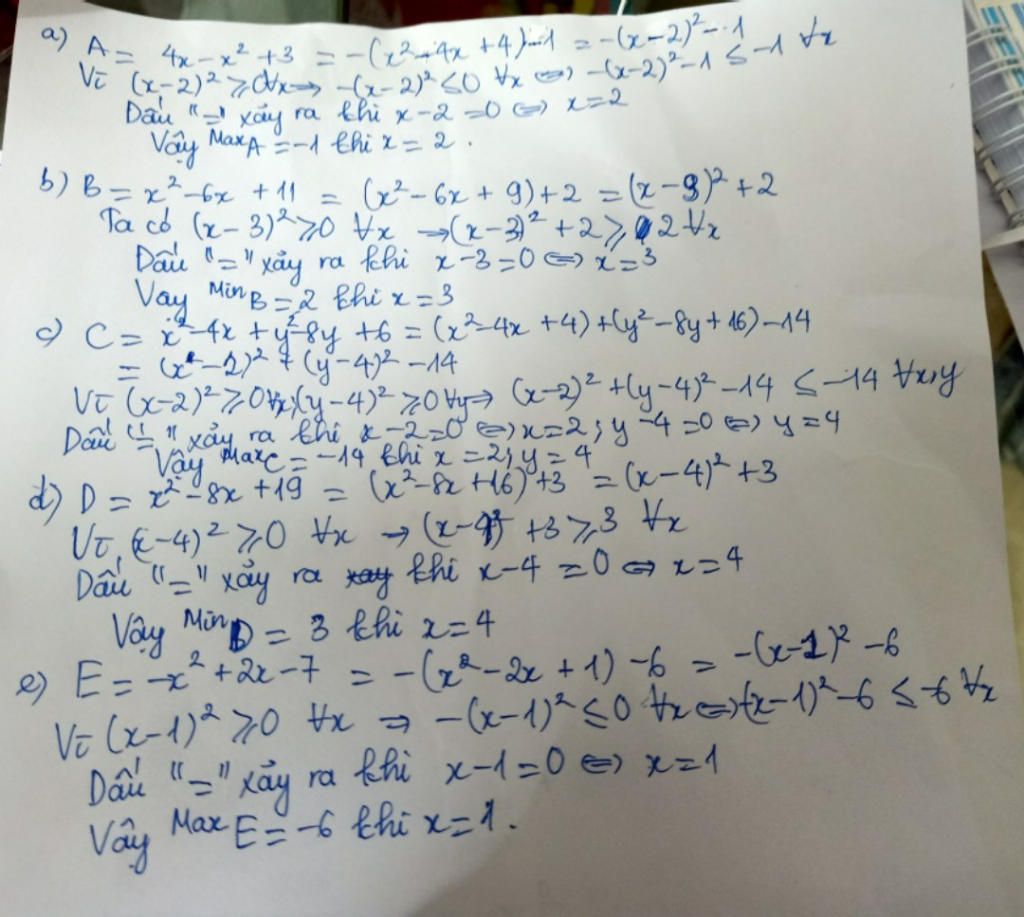 a) A = 4x - x² + 3 = -(x² - 4x + 4) - 1 = -(x-2)² - 1
Vì (x-2)² ≥ 0 ∀x → -(x-2)² ≤ 0 ∀x ⇔ -(x-2)² - 1 ≤ -1 ∀x
Dấu "=" xảy ra khi x - 2 = 0 ⇔ x = 2
Vậy Max A = -1 khi x = 2.
b) B = x² - 6x + 11 = (x² - 6x + 9) + 2 = (x-3)² + 2
Ta có (x-3)² ≥ 0 ∀x → (x-3)² + 2 ≥ 2 ∀x
Dấu "=" xảy ra khi x - 3 = 0 ⇔ x = 3
Vay Min B = 2 khi x = 3
c) C = x² - 4x + y² - 8y + 6 = (x² - 4x + 4) + (y² - 8y + 16) - 14
= (x - 2)² + (y-4)² - 14
Vì (x-2)² ≥ 0 ∀x; (y-4)² ≥ 0 ∀y ⇒ (x-2)² + (y-4)² - 14 ≤ -14 ∀x,y
Dấu "=" xảy ra khi x - 2 = 0 ⇔ x = 2; y - 4 = 0 ⇔ y = 4
Vậy Max C = -14 khi x = 2; y = 4
d) D = x² - 8x + 19 = (x² - 8x + 16) + 3 = (x-4)² + 3
Vì (x-4)² ≥ 0 ∀x → (x-4)² + 3 ≥ 3 ∀x
Dấu "=" xảy ra khi x - 4 = 0 ⇔ x = 4
Vậy Min D = 3 khi x = 4
e) E = -x² + 2x - 7 = -(x² - 2x + 1) - 6 = -(x-1)² - 6
Vì (x-1)² ≥ 0 ∀x ⇒ -(x-1)² ≤ 0 ∀x ⇔ -(x-1)² - 6 ≤ -6 ∀x
Dấu "=" xảy ra khi x - 1 = 0 ⇔ x = 1
Vậy Max E = -6 khi x = 1.